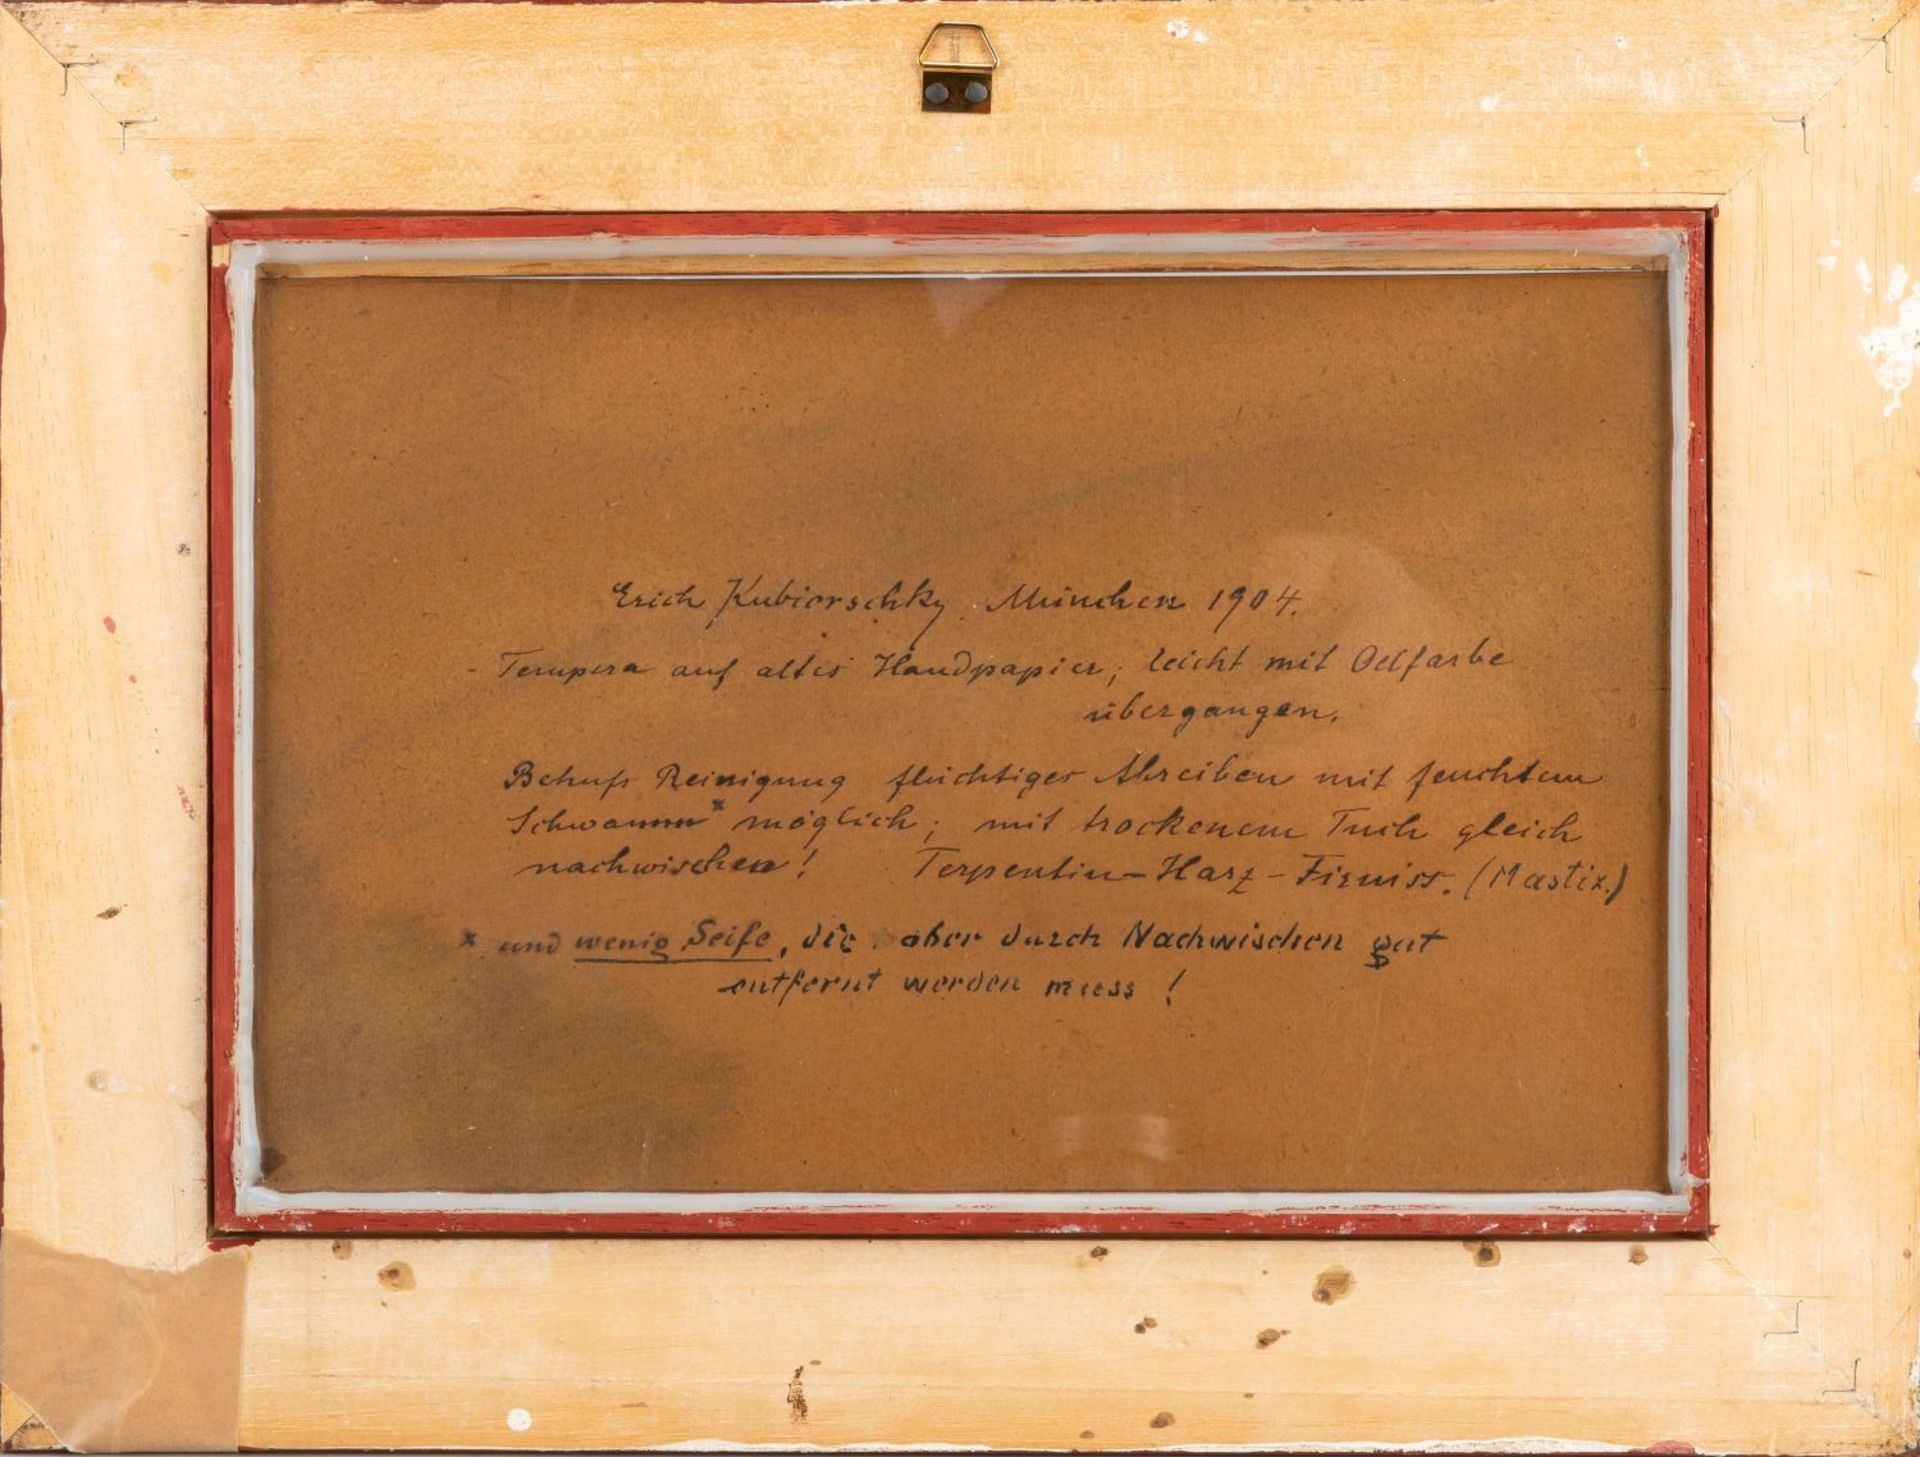 Erich Kubierschky. München 1904.
- Tempera auf altes Handpapier, leicht mit Oelfarbe
übergangen.
Behufs Reinigung flüchtiges Abreiben mit feuchtem
Schwamm x möglich; mit trockenem Tuch gleich
nachwischen! Terpentin-Harz-Firniss. (Mastix.)
x und wenig Seife, die aber durch Nachwischen gut
entfernt werden muss!